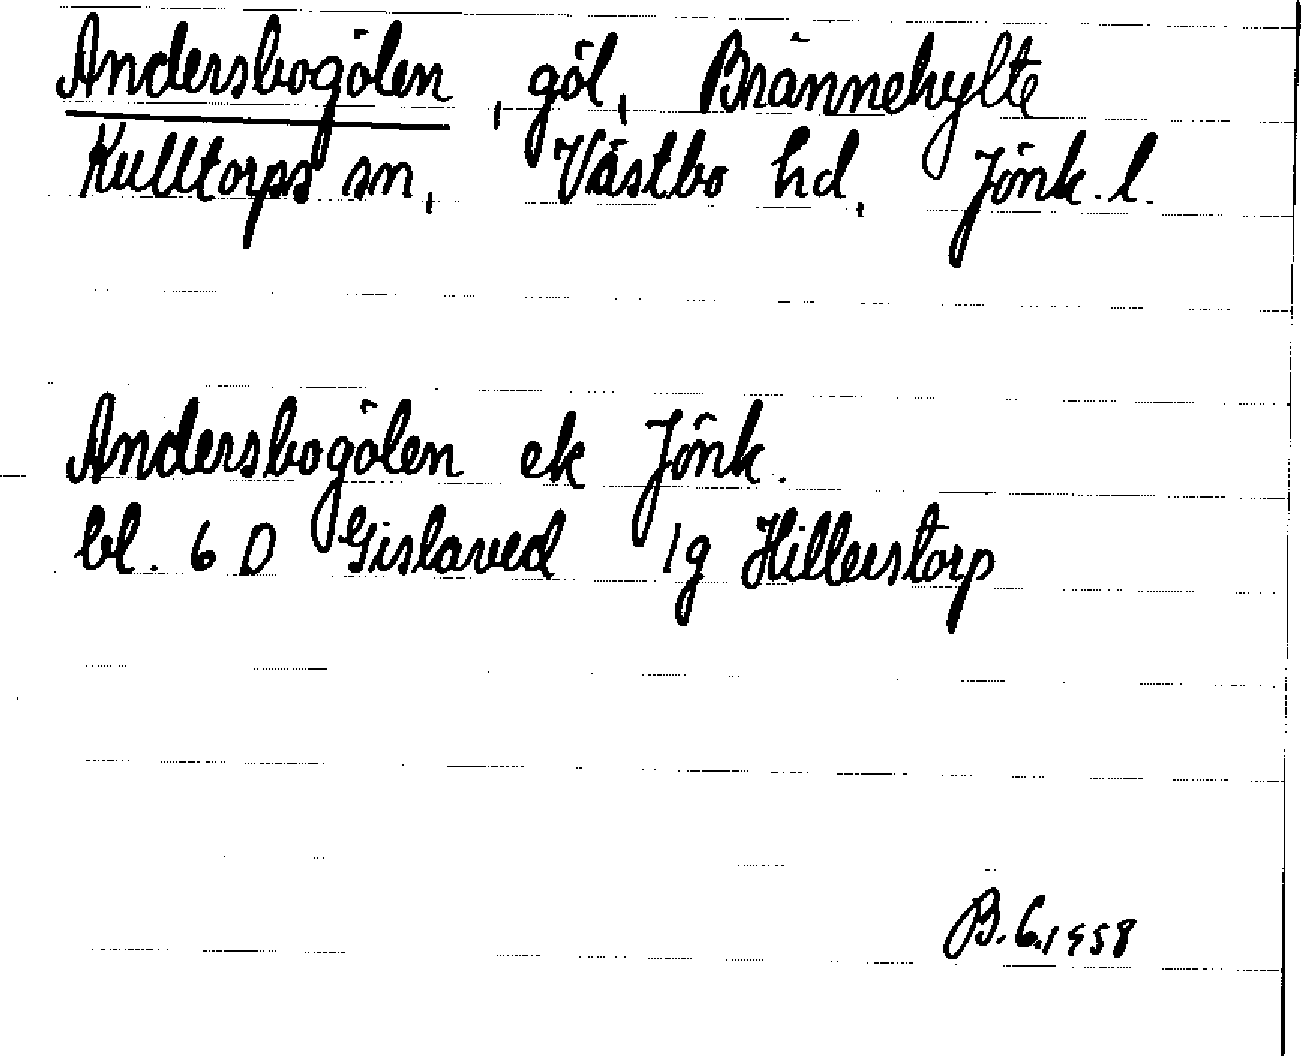 Andersbogölen, göl, Brännehylte
Kulltorps sn, Västbo hd, Jönk. l.
Andersbogölen ek Jönk.
bl. 6 D Gislaved 1g Hillerstorp
B. G. 1958